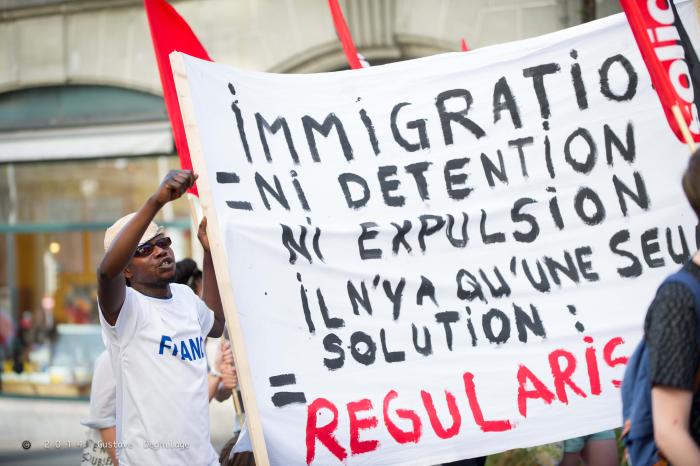 iMMiGRATiO
= Ni DETENTiON
Ni EXPULSiON
iL N'Y A QU'UNE SEU
SOLUTiON :
= REGULARiS
FRAN
solid
© 2014 Gustave Deghilage